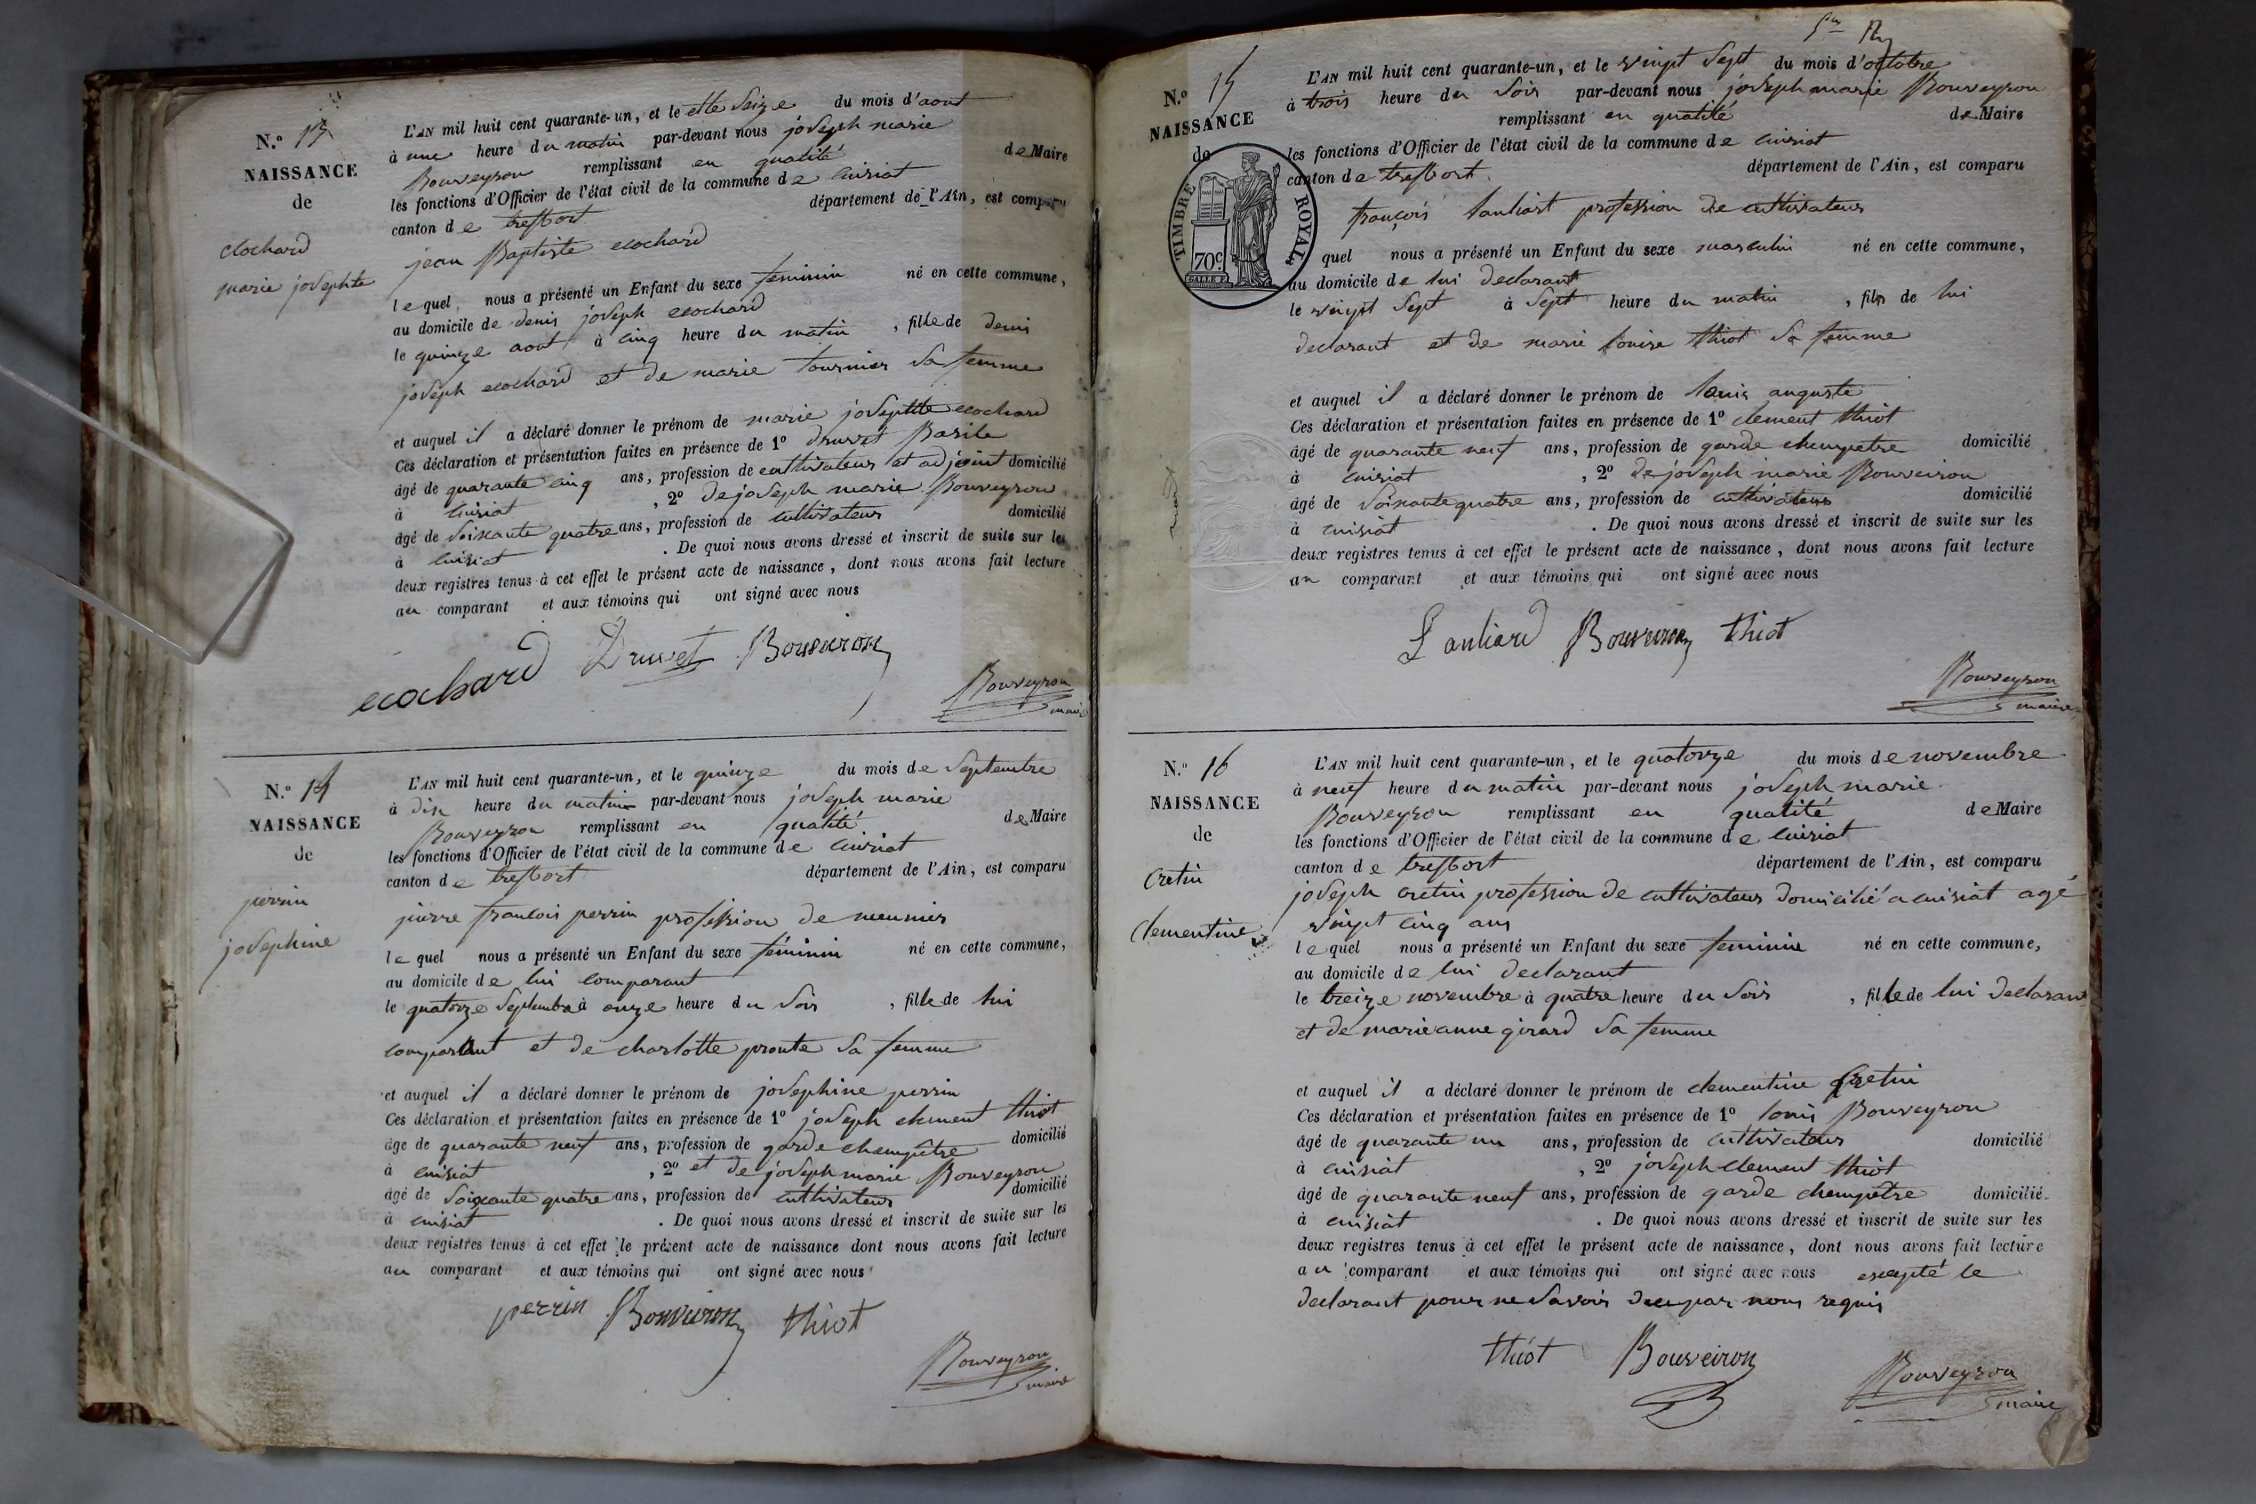 N.º 13
NAISSANCE
de
ecochard
marie josephte
L'AN mil huit cent quarante-un, et le seize du mois d'aout
à une heure du matin par-devant nous joseph marie
Bouveyron remplissant en qualité de Maire
les fonctions d'Officier de l'état civil de la commune de cuisiat
canton de treffort département de l'Ain, est comparu
jean Baptiste ecochard
lequel nous a présenté un Enfant du sexe feminin né en cette commune,
au domicile de denis joseph ecochard
le quinze aout à cinq heure du matin, fille de denis
joseph ecochard et de marie tournier sa femme
et auquel il a déclaré donner le prénom de marie josephte ecochard
Ces déclaration et présentation faites en présence de 1º druvet Basile
âgé de quarante cinq ans, profession de cultivateur et adjoint domicilié
à cuisiat, 2º de joseph marie Bouveyron
âgé de soixante quatre ans, profession de cultivateur domicilié
à cuisiat. De quoi nous avons dressé et inscrit de suite sur les
deux registres tenus à cet effet le présent acte de naissance, dont nous avons fait lecture
au comparant et aux témoins qui ont signé avec nous
ecochard Druvet Bouveiron
Bouveyron
maire
N.º 14
NAISSANCE
de
perrin
josephine
L'AN mil huit cent quarante-un, et le quinze du mois de septembre
à dix heure du matin par-devant nous joseph marie
Bouveyron remplissant en qualité de Maire
les fonctions d'Officier de l'état civil de la commune de cuisiat
canton de treffort département de l'Ain, est comparu
pierre francois perrin profession de meunier
lequel nous a présenté un Enfant du sexe féminin né en cette commune,
au domicile de lui comparant
le quatorze septembre à onze heure du soir, fille de lui
comparant et de charlotte pronte sa femme
et auquel il a déclaré donner le prénom de josephine perrin
Ces déclaration et présentation faites en présence de 1º joseph clement thiot
âgé de quarante neuf ans, profession de garde champêtre domicilié
à cuisiat, 2º et de joseph marie Bouveyron
âgé de soixante quatre ans, profession de cultivateur domicilié
à cuisiat. De quoi nous avons dressé et inscrit de suite sur les
deux registres tenus à cet effet le présent acte de naissance dont nous avons fait lecture
au comparant et aux témoins qui ont signé avec nous
perrin Bouveiron thiot
Bouveyron
maire
N.º 15
NAISSANCE
de
TIMBRE ROYAL
70c
L'AN mil huit cent quarante-un, et le vingt sept du mois d'octobre
à trois heure du soir par-devant nous joseph marie Bouveyron
remplissant en qualité de Maire
les fonctions d'Officier de l'état civil de la commune de cuisiat
canton de treffort. département de l'Ain, est comparu
françois Lanliard profession de cultivateur
quel nous a présenté un Enfant du sexe masculin né en cette commune,
au domicile de lui declarant
le vingt sept à sept heure du matin, fils de lui
declarant et de marie louise thiot sa femme
et auquel il a déclaré donner le prénom de louis auguste
Ces déclaration et présentation faites en présence de 1º clement thiot
âgé de quarante neuf ans, profession de garde champetre domicilié
à cuisiat, 2º de joseph marie Bouveiron
âgé de soixante quatre ans, profession de cultivateur domicilié
à cuisiat. De quoi nous avons dressé et inscrit de suite sur les
deux registres tenus à cet effet le présent acte de naissance, dont nous avons fait lecture
au comparant et aux témoins qui ont signé avec nous
Lanliard Bouveiron thiot
Bouveyron
maire
N.º 16
NAISSANCE
de
Cretin
Clementine
L'AN mil huit cent quarante-un, et le quatorze du mois de novembre
à neuf heure du matin par-devant nous joseph marie
Bouveyron remplissant en qualité de Maire
les fonctions d'Officier de l'état civil de la commune de cuisiat
canton de treffort département de l'Ain, est comparu
joseph cretin profession de cultivateur domicilié a cuisiat agé
vingt cinq ans
lequel nous a présenté un Enfant du sexe feminin né en cette commune,
au domicile de lui declarant
le treize novembre à quatre heure du soir, fille de lui declarant
et de marieanne girard sa femme
et auquel il a déclaré donner le prénom de clementine Cretin
Ces déclaration et présentation faites en présence de 1º louis Bouveyron
âgé de quarante un ans, profession de cultivateur domicilié
à cuisiat, 2º joseph clement thiot
âgé de quarante neuf ans, profession de garde champêtre domicilié
à cuisiat. De quoi nous avons dressé et inscrit de suite sur les
deux registres tenus à cet effet le présent acte de naissance, dont nous avons fait lecture
au comparant et aux témoins qui ont signé avec nous excepté le
declarant pour ne savoir de ce par nous requis
thiot Bouveiron
Bouveyron
maire